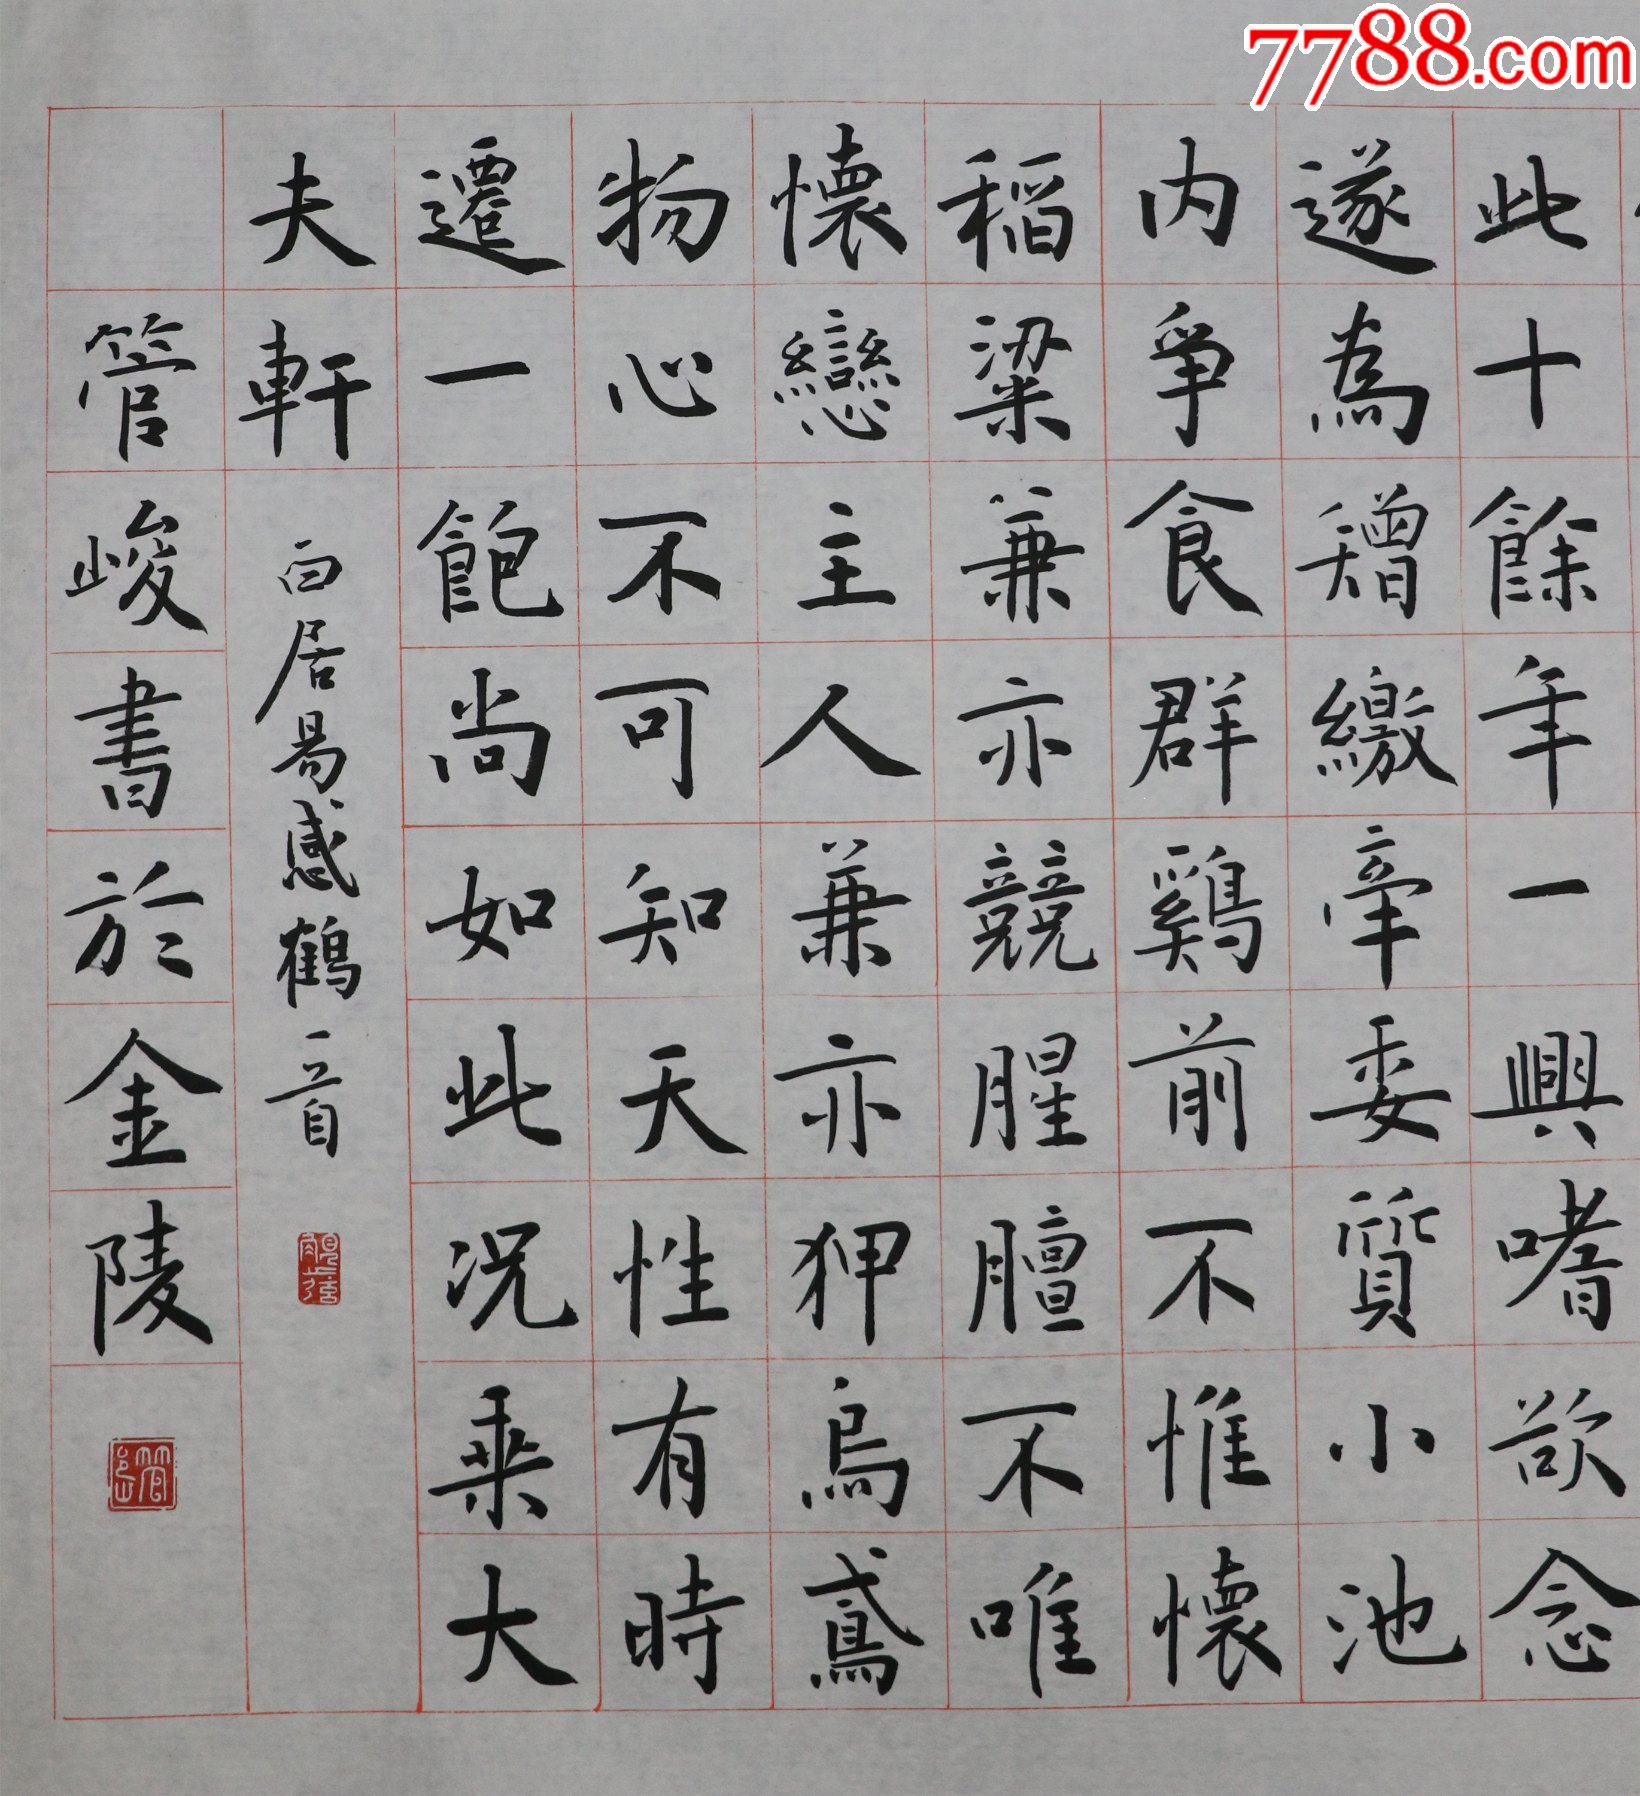 7788.com
此十餘年一興嗜欲念
遂為矰繳牽委質小池
内爭食群鷄前不惟懷
稻粱兼亦競腥膻不唯
懷戀主人兼亦狎烏鳶
物心不可知天性有時
遷一飽尚如此況乘大
夫軒
白居易感鶴一首
管峻書於金陵